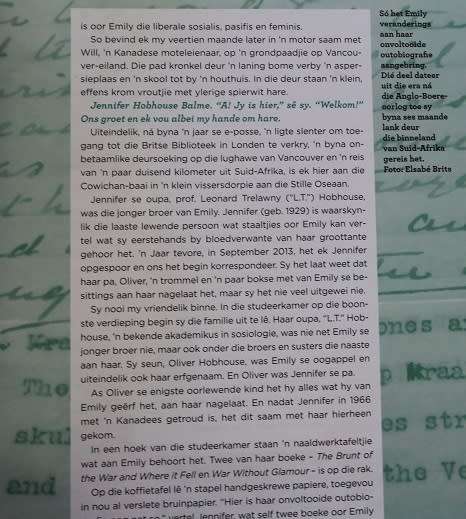 is oor Emily die liberale sosialis, pasifis en feminis.
So bevind ek my veertien maande later in 'n motor saam met
Will, 'n Kanadese moteleienaar, op 'n grondpaadjie op Vancou-
ver-eiland. Die pad kronkel deur 'n laning bome verby 'n asper-
sieplaas en 'n skool tot by 'n houthuis. In die deur staan 'n klein,
effens krom vroutjie met ylerige spierwit hare.
Jennifer Hobhouse Balme. “A! Jy is hier,” sê sy. “Welkom!”
Ons groet en ek vou albei my hande om hare.
Uiteindelik, ná byna 'n jaar se e-posse, 'n ligte slenter om toe-
gang tot die Britse Biblioteek in Londen te verkry, 'n byna on-
betaamlike deursoeking op die lughawe van Vancouver en 'n reis
van 'n paar duisend kilometer uit Suid-Afrika, is ek hier aan die
Cowichan-baai in 'n klein vissersdorpie aan die Stille Oseaan.
Jennifer se oupa, prof. Leonard Trelawny (“L.T.”) Hobhouse,
was die jonger broer van Emily. Jennifer (geb. 1929) is waarskyn-
lik die laaste lewende persoon wat staaltjies oor Emily kan ver-
tel wat sy eerstehands by bloedverwante van haar groottante
gehoor het. 'n Jaar tevore, in September 2013, het ek Jennifer
opgespoor en ons het begin korrespondeer. Sy het laat weet dat
haar pa, Oliver, 'n trommel en 'n paar bokse met van Emily se be-
sittings aan haar nagelaat het, maar sy het nie veel uitgewei nie.
Sy nooi my vriendelik binne. In die studeerkamer op die boon-
ste verdieping begin sy die familie uit te lê. Haar oupa, “L.T.” Hob-
house, 'n bekende akademikus in sosiologie, was nie net Emily se
jonger broer nie, maar ook onder die broers en susters die naaste
aan haar. Sy seun, Oliver Hobhouse, was Emily se oogappel en
uiteindelik ook haar erfgenaam. En Oliver was Jennifer se pa.
As Oliver se enigste oorlewende kind het hy alles wat hy van
Emily geërf het, aan haar nagelaat. En nadat Jennifer in 1966
met 'n Kanadees getroud is, het dit saam met haar hierheen
gekom.
In een hoek van die studeerkamer staan 'n naaldwerktafeltjie
wat aan Emily behoort het. Twee van haar boeke – The Brunt of
the War and Where it Fell en War Without Glamour – is op die rak.
Op die koffietafel lê 'n stapel handgeskrewe papiere, toegevou
in nou al verslete bruinpapier. “Hier is haar onvoltooide outobio-
vertel Jennifer, wat self twee boeke oor Emily
Só het Emily
veranderings
aan haar
onvoltooide
outobiografie
aangebring.
Dié deel dateer
uit die era ná
die Anglo-Boere-
oorlog toe sy
byna ses maande
lank deur
die binneland
van Suid-Afrika
gereis het.
Foto: Elsabé Brits
The
skul
and
ones a
Kraal
es str
the Ve